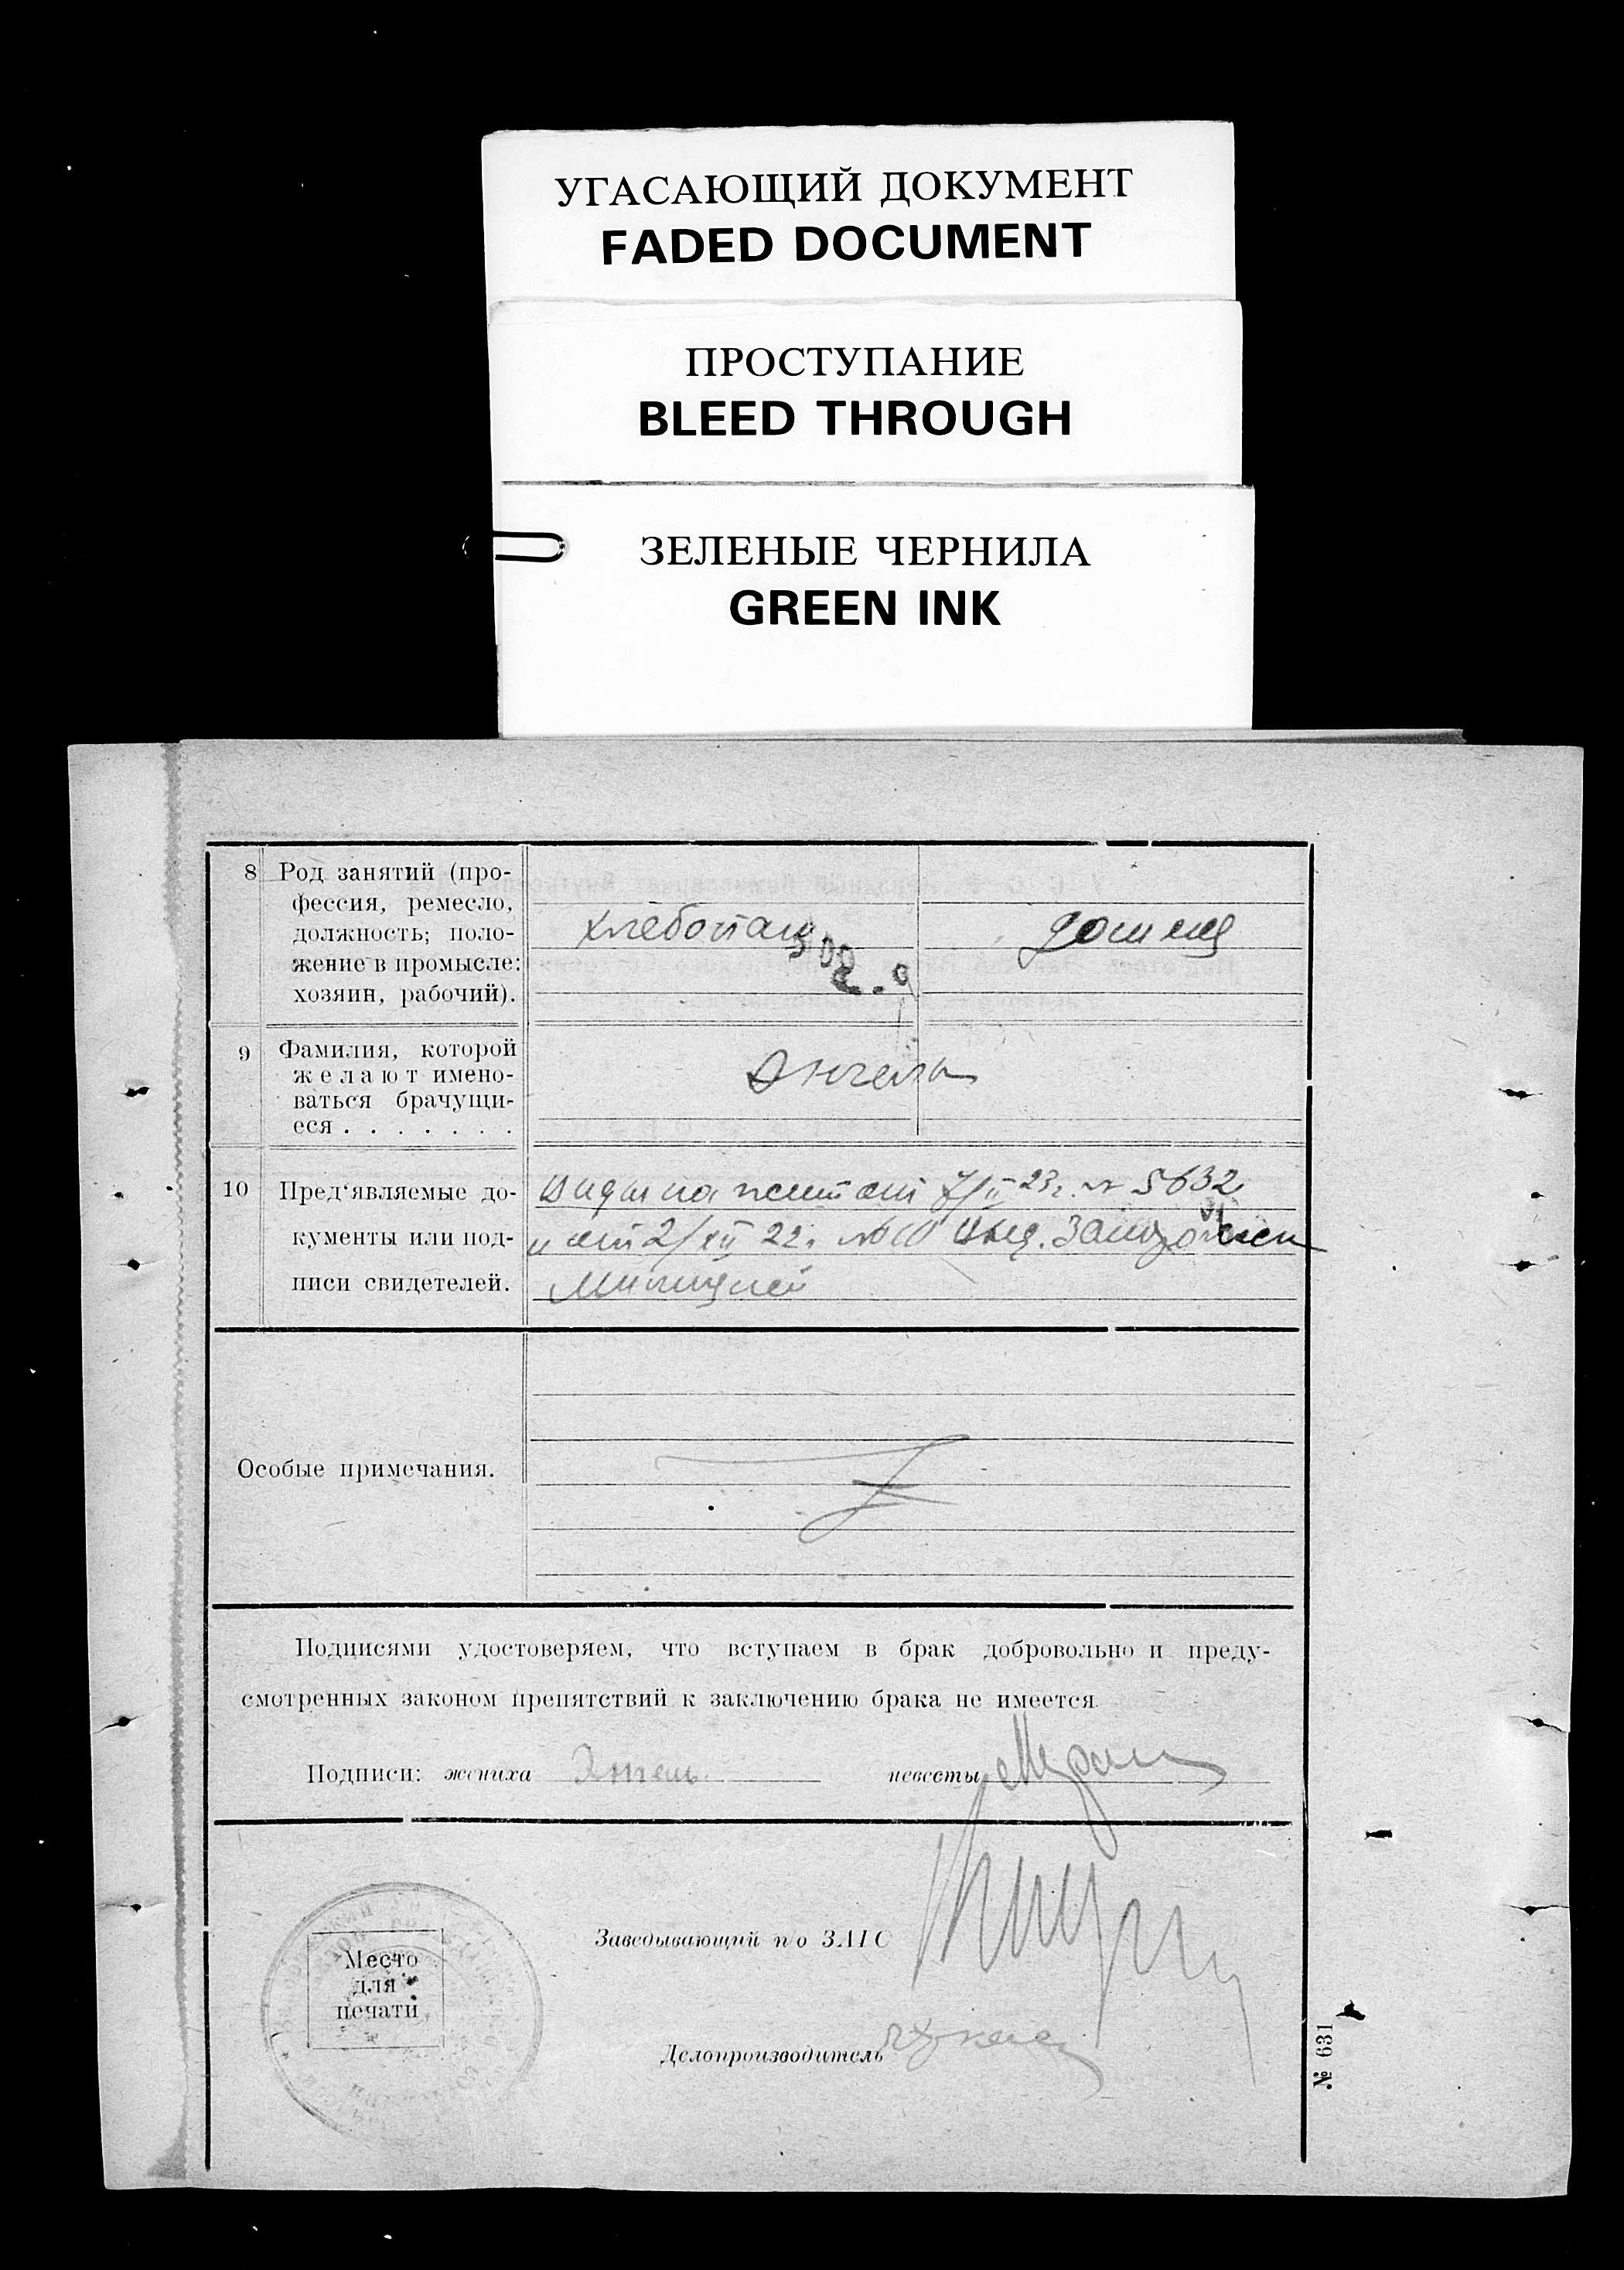 УГАСАЮЩИЙ ДОКУМЕНТ
FADED DOCUMENT
ПРОСТУПАНИЕ
BLEED THROUGH
ЗЕЛЕНЫЕ ЧЕРНИЛА
GREEN INK
8 Род занятий (про-
фессия, ремесло,
должность; поло-
жение в промысле:
хозяин, рабочий).
9 Фамилия, которой
желают имено-
ваться брачущи-
еся . . . . . . .
10 Пред'являемые до-
кументы или под-
писи свидетелей.
Виды на жит от 7/II 23г. № 5632
и от 2/XII 22г. выд.
Милицией
Особые примечания.
Подписями удостоверяем, что вступаем в брак добровольно и преду-
смотренных законом препятствий к заключению брака не имеется.
Подписи: жениха невесты
Место
для
печати
Заведывающий п/о ЗАГС
Делопроизводитель
№ 631